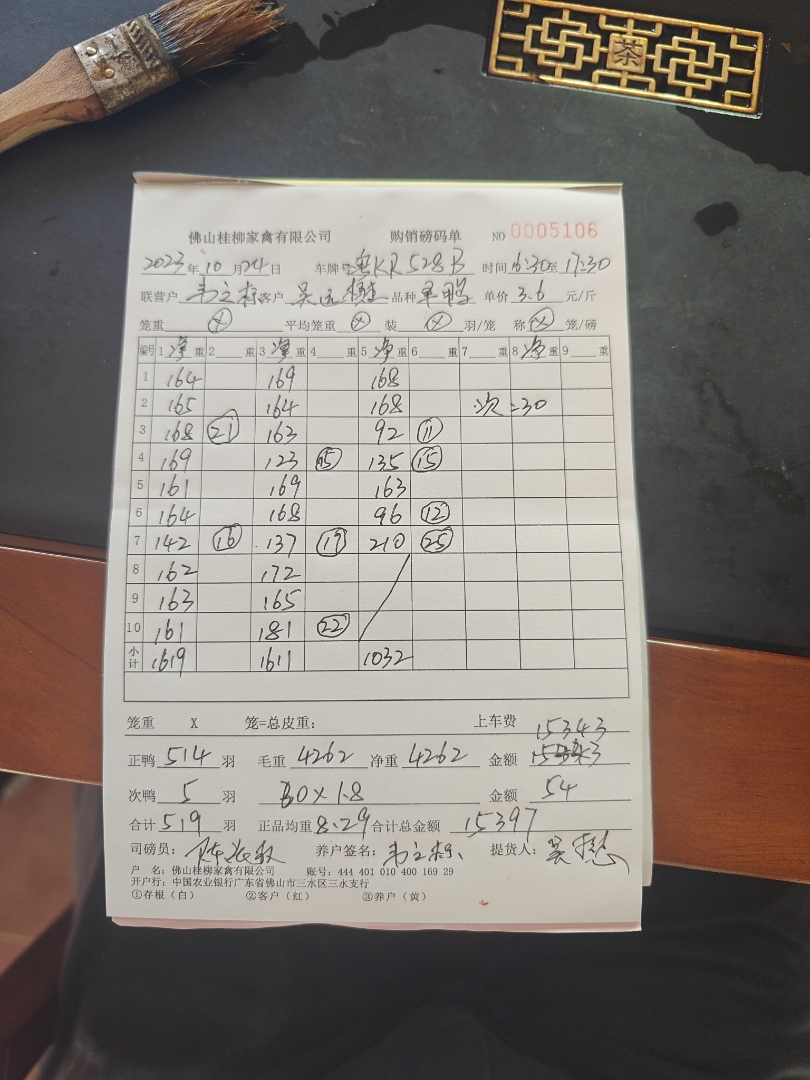 茶
佛山桂柳家禽有限公司 购销磅码单 NO 0005106
2023年10月24日 车牌号粤KR528B 时间16:30至17:30
联营户 韦立标 客户 吴 品种 单价3.6元/斤
笼重 X 平均笼重 X 装 X 羽/笼 称 X 笼/磅
编号 1净重 2重 3净重 4重 5净重 6重 7重 8净重 9重
1 164 169 168
2 165 164 168 次=30
3 168 21 163 92 11
4 169 123 15 135 15
5 161 169 163
6 164 168 96 12
7 142 16 137 19 210 25
8 162 172
9 163 165
10 161 181 22
小计 1619 1611 1032
笼重 X 笼=总皮重: 上车费
15343
正鸭514羽 毛重4262净重4262 金额
次鸭5羽 30×1.8 金额 54
合计519羽 正品均重8.29合计总金额15397
司磅员: 养户签名:韦立标 提货人:吴
户 名:佛山桂柳家禽有限公司 账号:444 401 010 400 169 29
开户行:中国农业银行广东省佛山市三水区三水支行
①存根(白) ②客户(红) ③养户(黄)